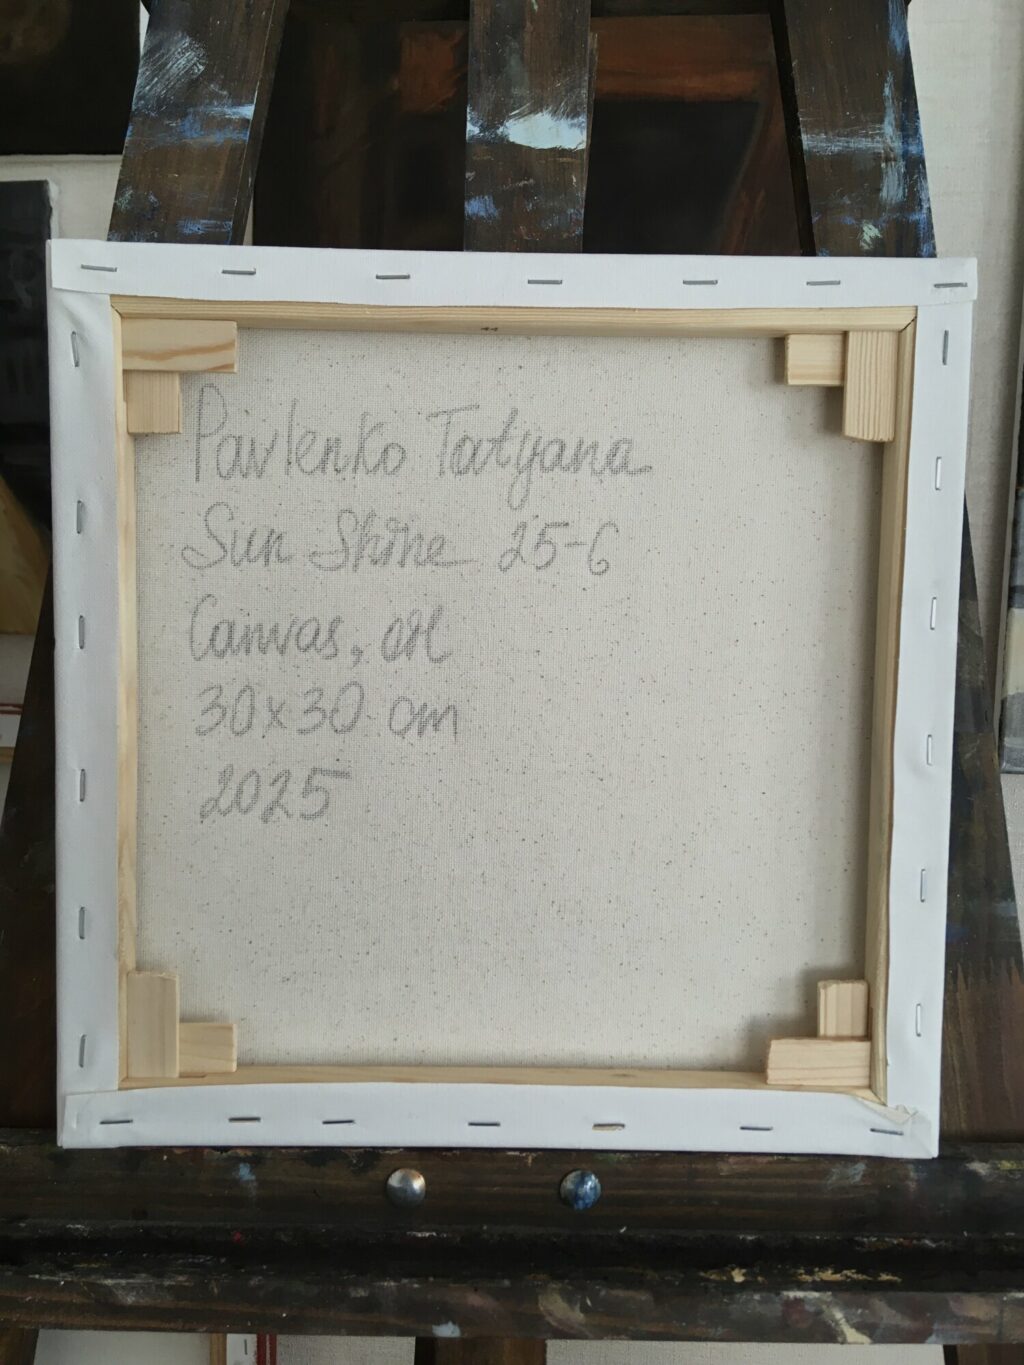 Pavlenko Tatyana
Sun Shine 25-6
Canvas, oil
30x30 cm
2025